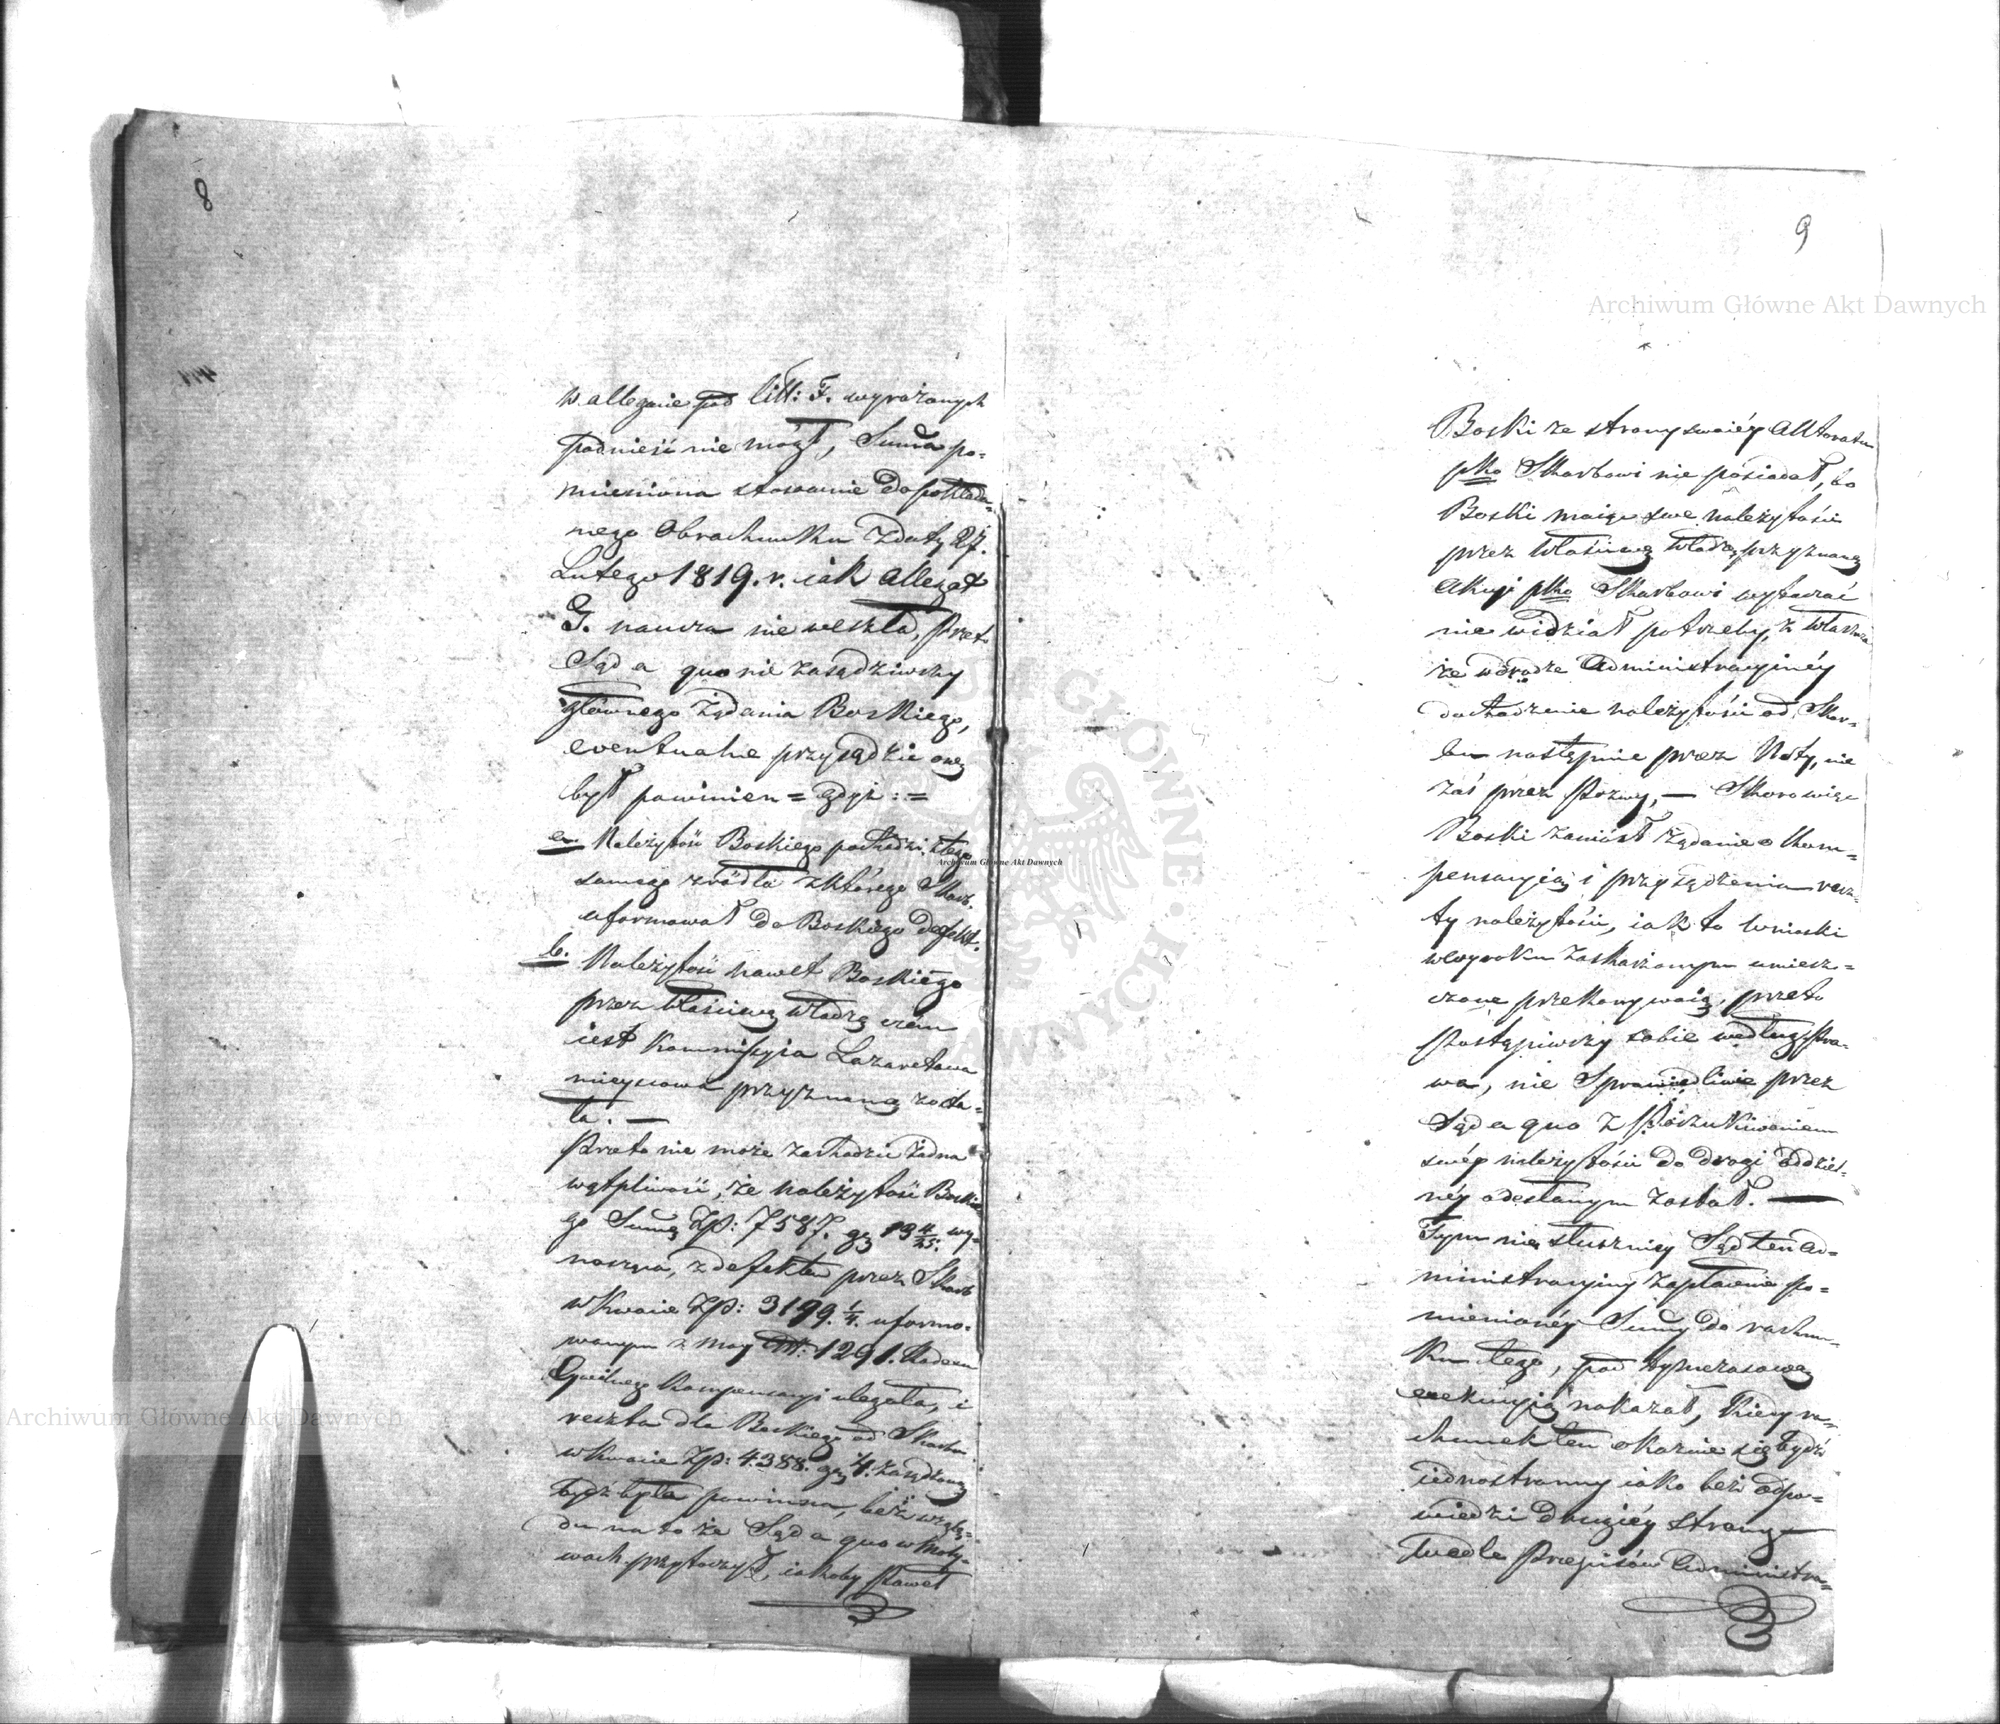 8
w allegacie pod litt: F. wyrażonych
podnieść nie mógł, Summa po=
mieniona stosownie do pokłada=
nego Obrachunku z daty 27.
Lutego 1819. r. iak Allegat
G. naucza nie weszła, Przeto
Sąd a quo nie zasądziwszy
głównego Żądania Boskiego,
eventualne przysądzić onę
był powinien = gdyż :=
a. Należytość Boskiego pochodzi z tego
samego zródła z którego Skarb
uformował do Boskiego defekt.
b. Należytość nawet Boskiego
przez właściwą Władzę czem
iest Kommissyia Lazaretowa
mieyscowa przyznaną zosta=
ła. —
Przeto nie może zachodzić żadna
wątpliwość, że należytość Boskie
go Summę Zp: 7587. gr 13 4/25. wy=
nosząca, z defektem przez Skarb
w kwocie Zp: 3199. 1/4. uformo=
wanym z mocy Art: 1291. Kodexu
Cywilnego Kompensacyi ulegała, i
reszta dla Boskiego od Skarbu
w kwocie Zp: 4388. gr 4. zasądzoną
bydź była powinna, beż wzglę=
du na to że Sąd a quo w Moty=
wach przytoczył, iakoby Paweł
9
Boski ze strony swoiéy Aktoratu
pko Skarbowi nie posiadał, bo
Boski maiąc swe należytości
przez właściwą Władzę przyznaną
Akcyi pko Skarbowi wytaczać
nie widział potrzeby, z własz
że w drodze Administracyinéy
dochodzenie należytości od Skar=
bu następnie przez Noty, nie
zaś przez Pozwy, — Skoro więc
Boski zaniósł żądanie o Kom=
pensacyią i przysądzenia resz=
ty należytości, iak to wnioski
w wyroku zaskarżonym umiesz=
czone przekonywaią, przeto
Postąpiwszy sobie według Pra=
wa, nie Sprawiedliwie przez
Sąd a quo z Poszukiwaniem
swéy należytości do drogi oddziel=
néy odesłanym został. —
Tym nie słuszniey Sąd ten Ad=
ministracyiny zapłacenie po=
mienionéy Summy do rachun=
ku tego, pod tymczasową
exekucyią nakazał, Kiedy ra=
chunek ten okaznie się bydź
iednostronny iako beż odpo=
wiedzi drugiéy strony
wedle Przepisów Administra=
Archiwum Główne Akt Dawnych
Archiwum Główne Akt Dawnych
Archiwum Główne Akt Dawnych